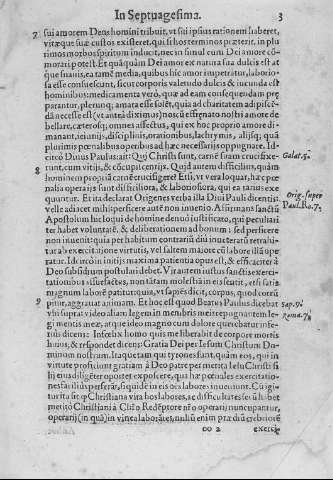 In Septuagesima.
3
7
sui amorem Deus homini tribuit, vt sui ipsius rationem haberet,
vitæque suæ custos existeret, qui si hos terminos præterit, in plu
rimos morbos spiritum inducit, nec in simul cum Dei amore cõ
morari potest. Et quãquàm Dei amor ex natura sua dulcis est at
que suauis, ea tamẽ media, quibus hic amor impetratur, laborio
sa esse consueuerunt, sicut corporis valetudo dulcis & iucunda est
hominibus medicamenta verò, quæ ad eam consequendam præ
parantur, plerunq; amara esse solẽt, quia ad charitatem
necesse est (vt antea diximus) nos cũ effrenato nostri amore de
bellare, cæterosq; omnes affectus, qui ex hoc proprio amore di
manant, ieiunijs, disciplinis, orationibus, lachrymis, alijsq; quã
plurimis pœnalibus operibus ad hæc necessarijs oppugnare. Id-
circò Diuus Paulus ait: Qui Christi sunt, carnẽ suam crucifixe-
Galat. 5.
runt, cum vitijs, & cõcupiscentijs. Quid autem difficilius, quàm
8
hominem propriã carnẽ crucifigere? Etsi, vt vera loquar, hæc pœ
nalia opera ijs sunt difficiliora, & laboriosiora, qui ea rarius exe
quuntur. Et ita declarat Origenes verba illa Diui Pauli dicentis:
Orig. super
Paul. Ro. 7.
velle adiacet mihi perficere autẽ non inuenio. Affirmans sanctũ
Apostolum hic loqui de homine denuò iustificato, qui peculiari
ter habet voluntatẽ, & deliberationem ad bonum: sed perficere
non inuenit quia per habitum contrariũ diu inueteratũ retrahi-
tur ab exercitatione virtutis, vel saltem maiore cũ labore illã ope
ratur. Idcircò in initijs maxima patientia opus est, & efficaciter à
Deo subsidium postulari debet. Vir autem iustus sanctis exerci-
tationibus assuefactus, non tãtam molestiã in eis sentit, etsi satis
magnum laborẽ patitur quia, vt sapiẽs dicit, corpus, quod corrũ
9
pitur, aggrauat animam. Et hoc est quod Beatus Paulus dicebat
Sap. 9.
vbi suprat video aliam legem in membris meis repugnantem le
Roma. 7.
gi mentis meæ, atque ideo magno cum dolore querebatur infe-
riùs dicens: Infœlix homo quis me liberabit de corpore mortis
huius, & respondet dicens: Gratia Dei per Iesum Christum Do-
minum nostrum. Itaque tam qui tyrones sunt, quàm eos, qui in
virtute proficiunt gratiam à Deo patre per merita Iesu Christi fi
lij eius diligẽter oportet exposcere, qua hæ pœnales exercitatio-
nes facili iùs perferãt, si quidẽ in eis otis labores inueniunt. Cũ igi
tur ita sit vt Christiana vita hos labores, ac difficultates secũ habet
meritò Christiani à Chrõ Redẽptore nrõ operarij nuncupantur,
operarij (in quã) in vinea laborãtes, nullũ enim prædiũ crebriorẽ
oo 2
exercita